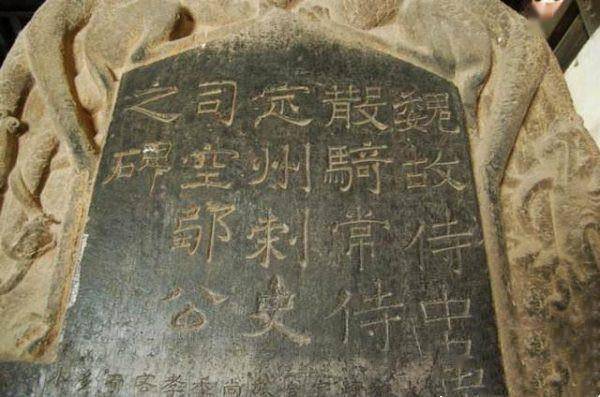 魏故侍中
散騎常侍
定州刺史
司空邸公
之碑